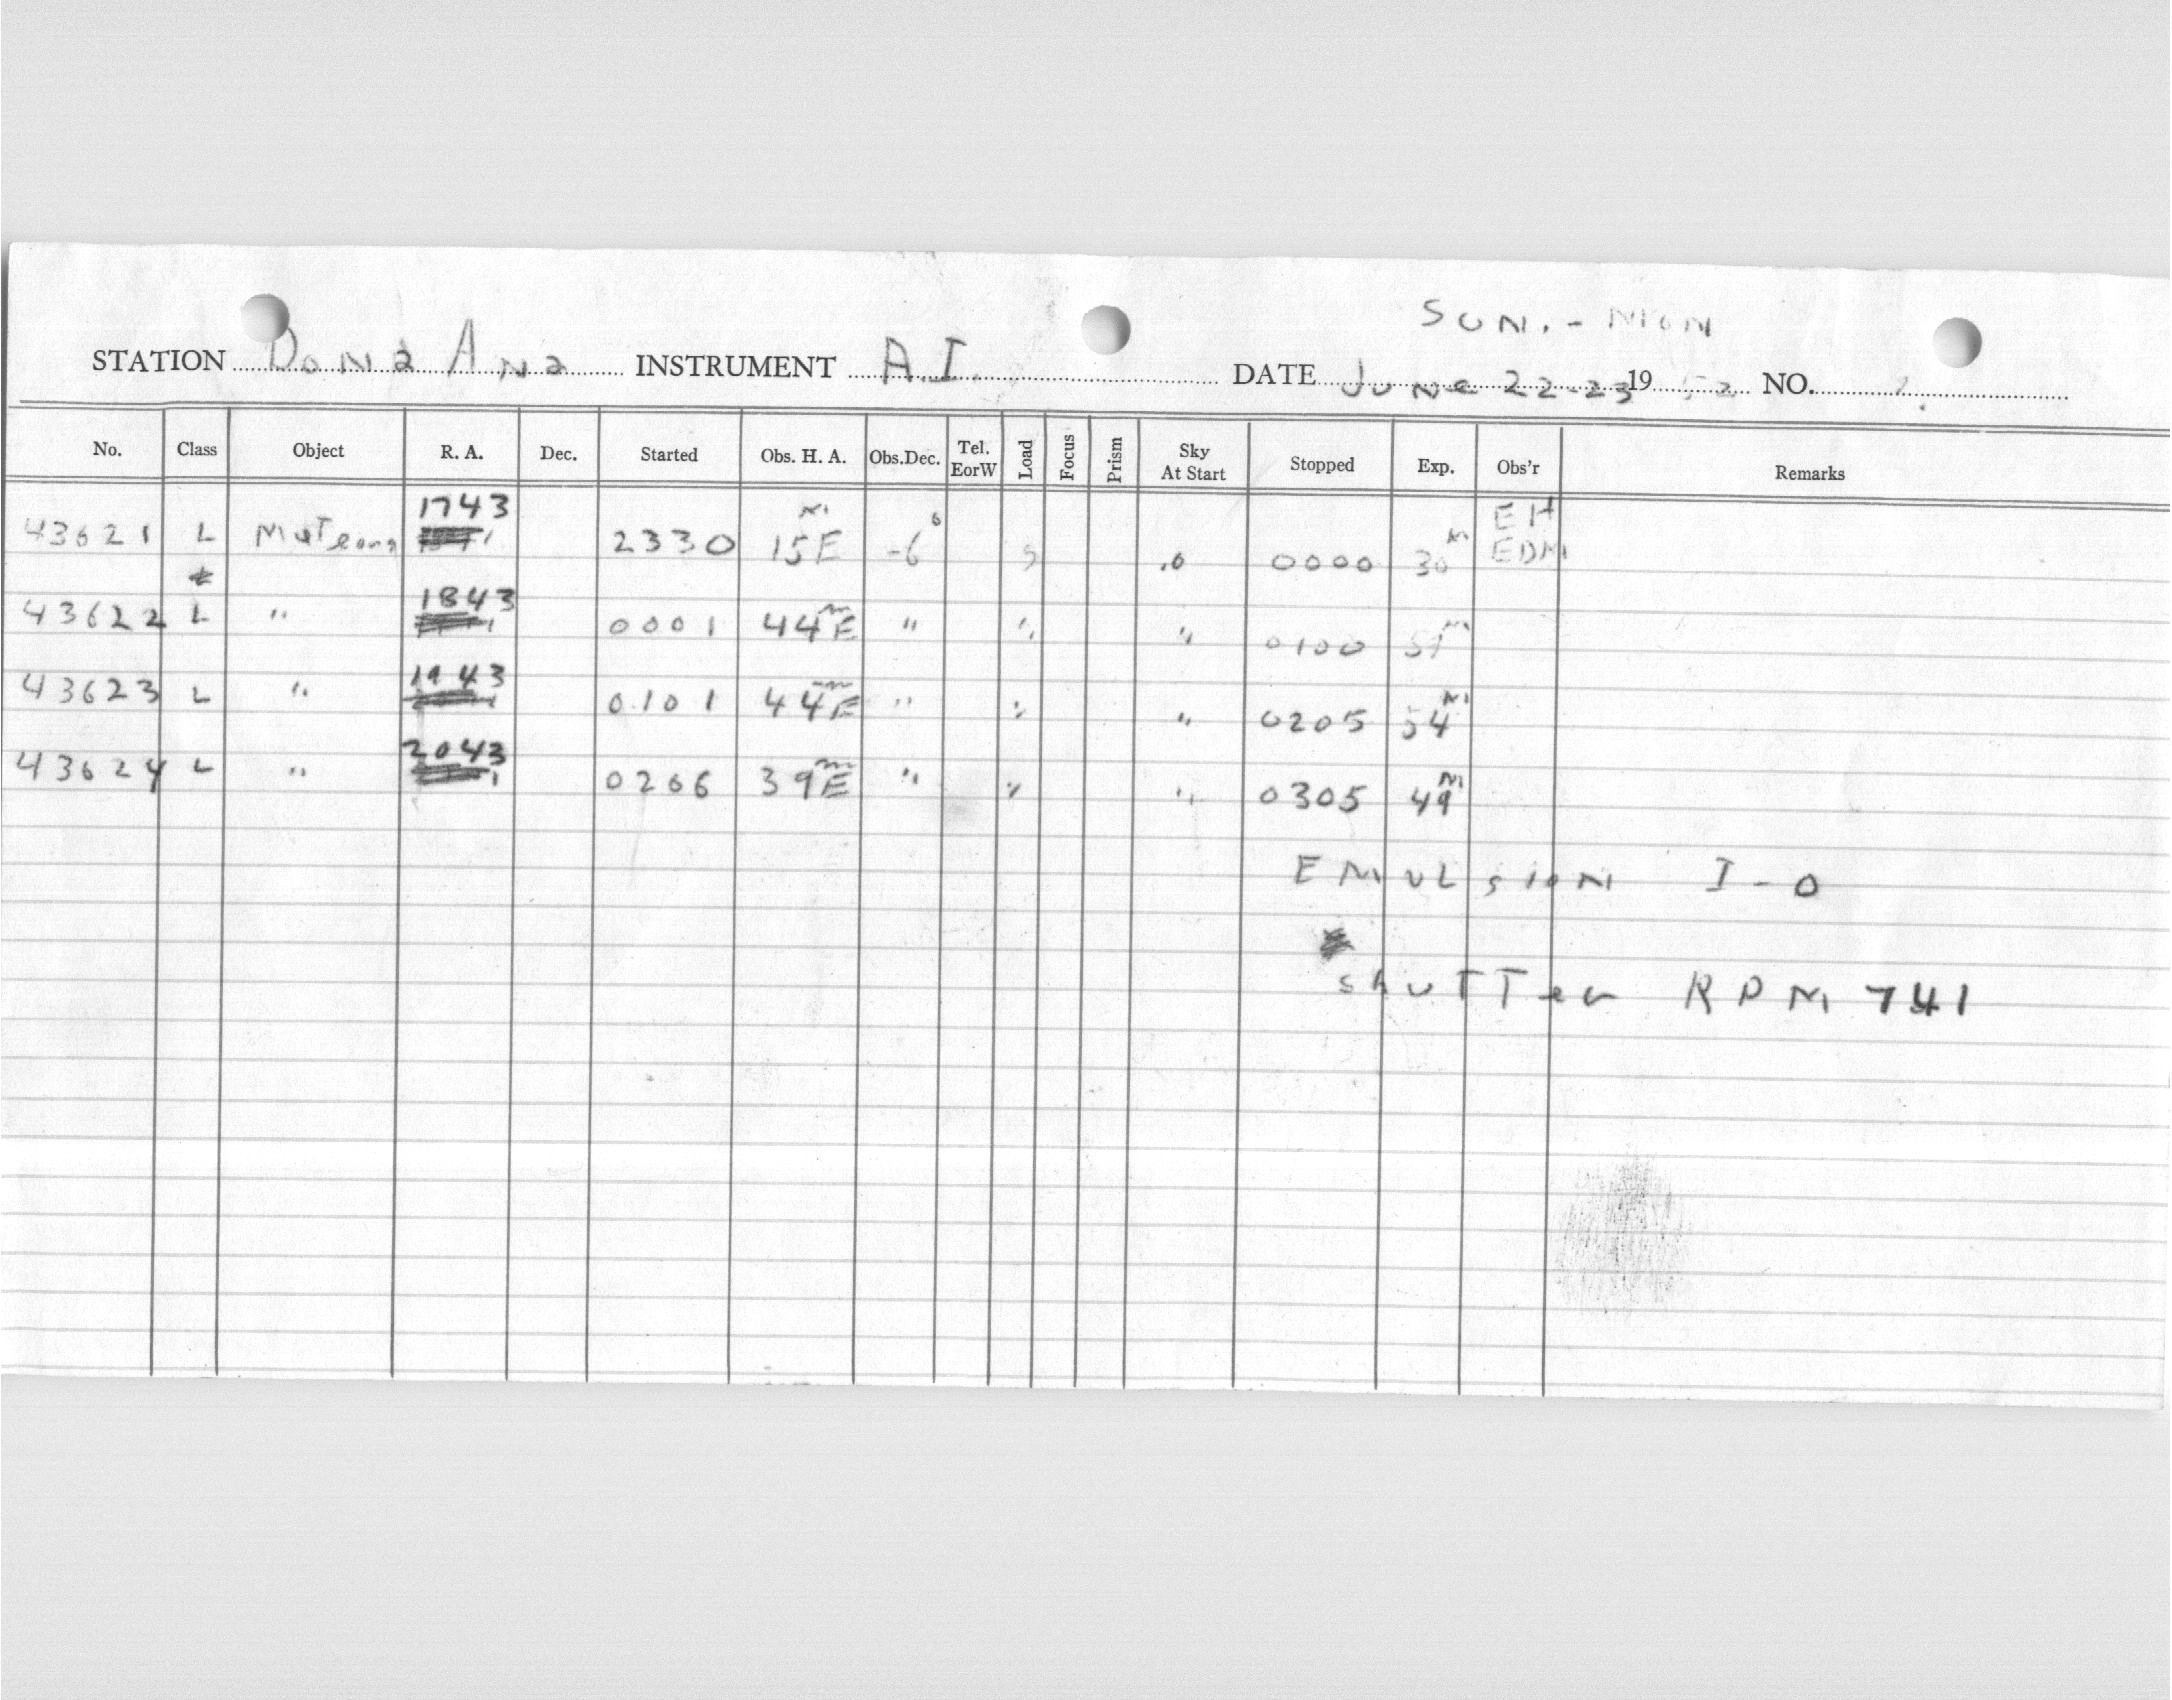 SUN. - MON
STATION Dona Ana INSTRUMENT A.I. DATE June 22-23 1952 NO.
No. Class Object R. A. Dec. Started Obs. H. A. Obs.Dec. Tel. EorW Load Focus Prism Sky At Start Stopped Exp. Obs'r Remarks
43621 L Meteors 1743 2330 15ᵐE -6° 5 .0 0000 30ᵐ EH EDM
*
43622 L " 1843 0001 44ᵐE " " " 0100 59ᵐ
43623 L " 1943 0101 44ᵐE " " " 0205 54ᵐ
43624 L " 2043 0206 39ᵐE " " " 0305 49ᵐ
EMULSION I-O
* Shutter RPM 741